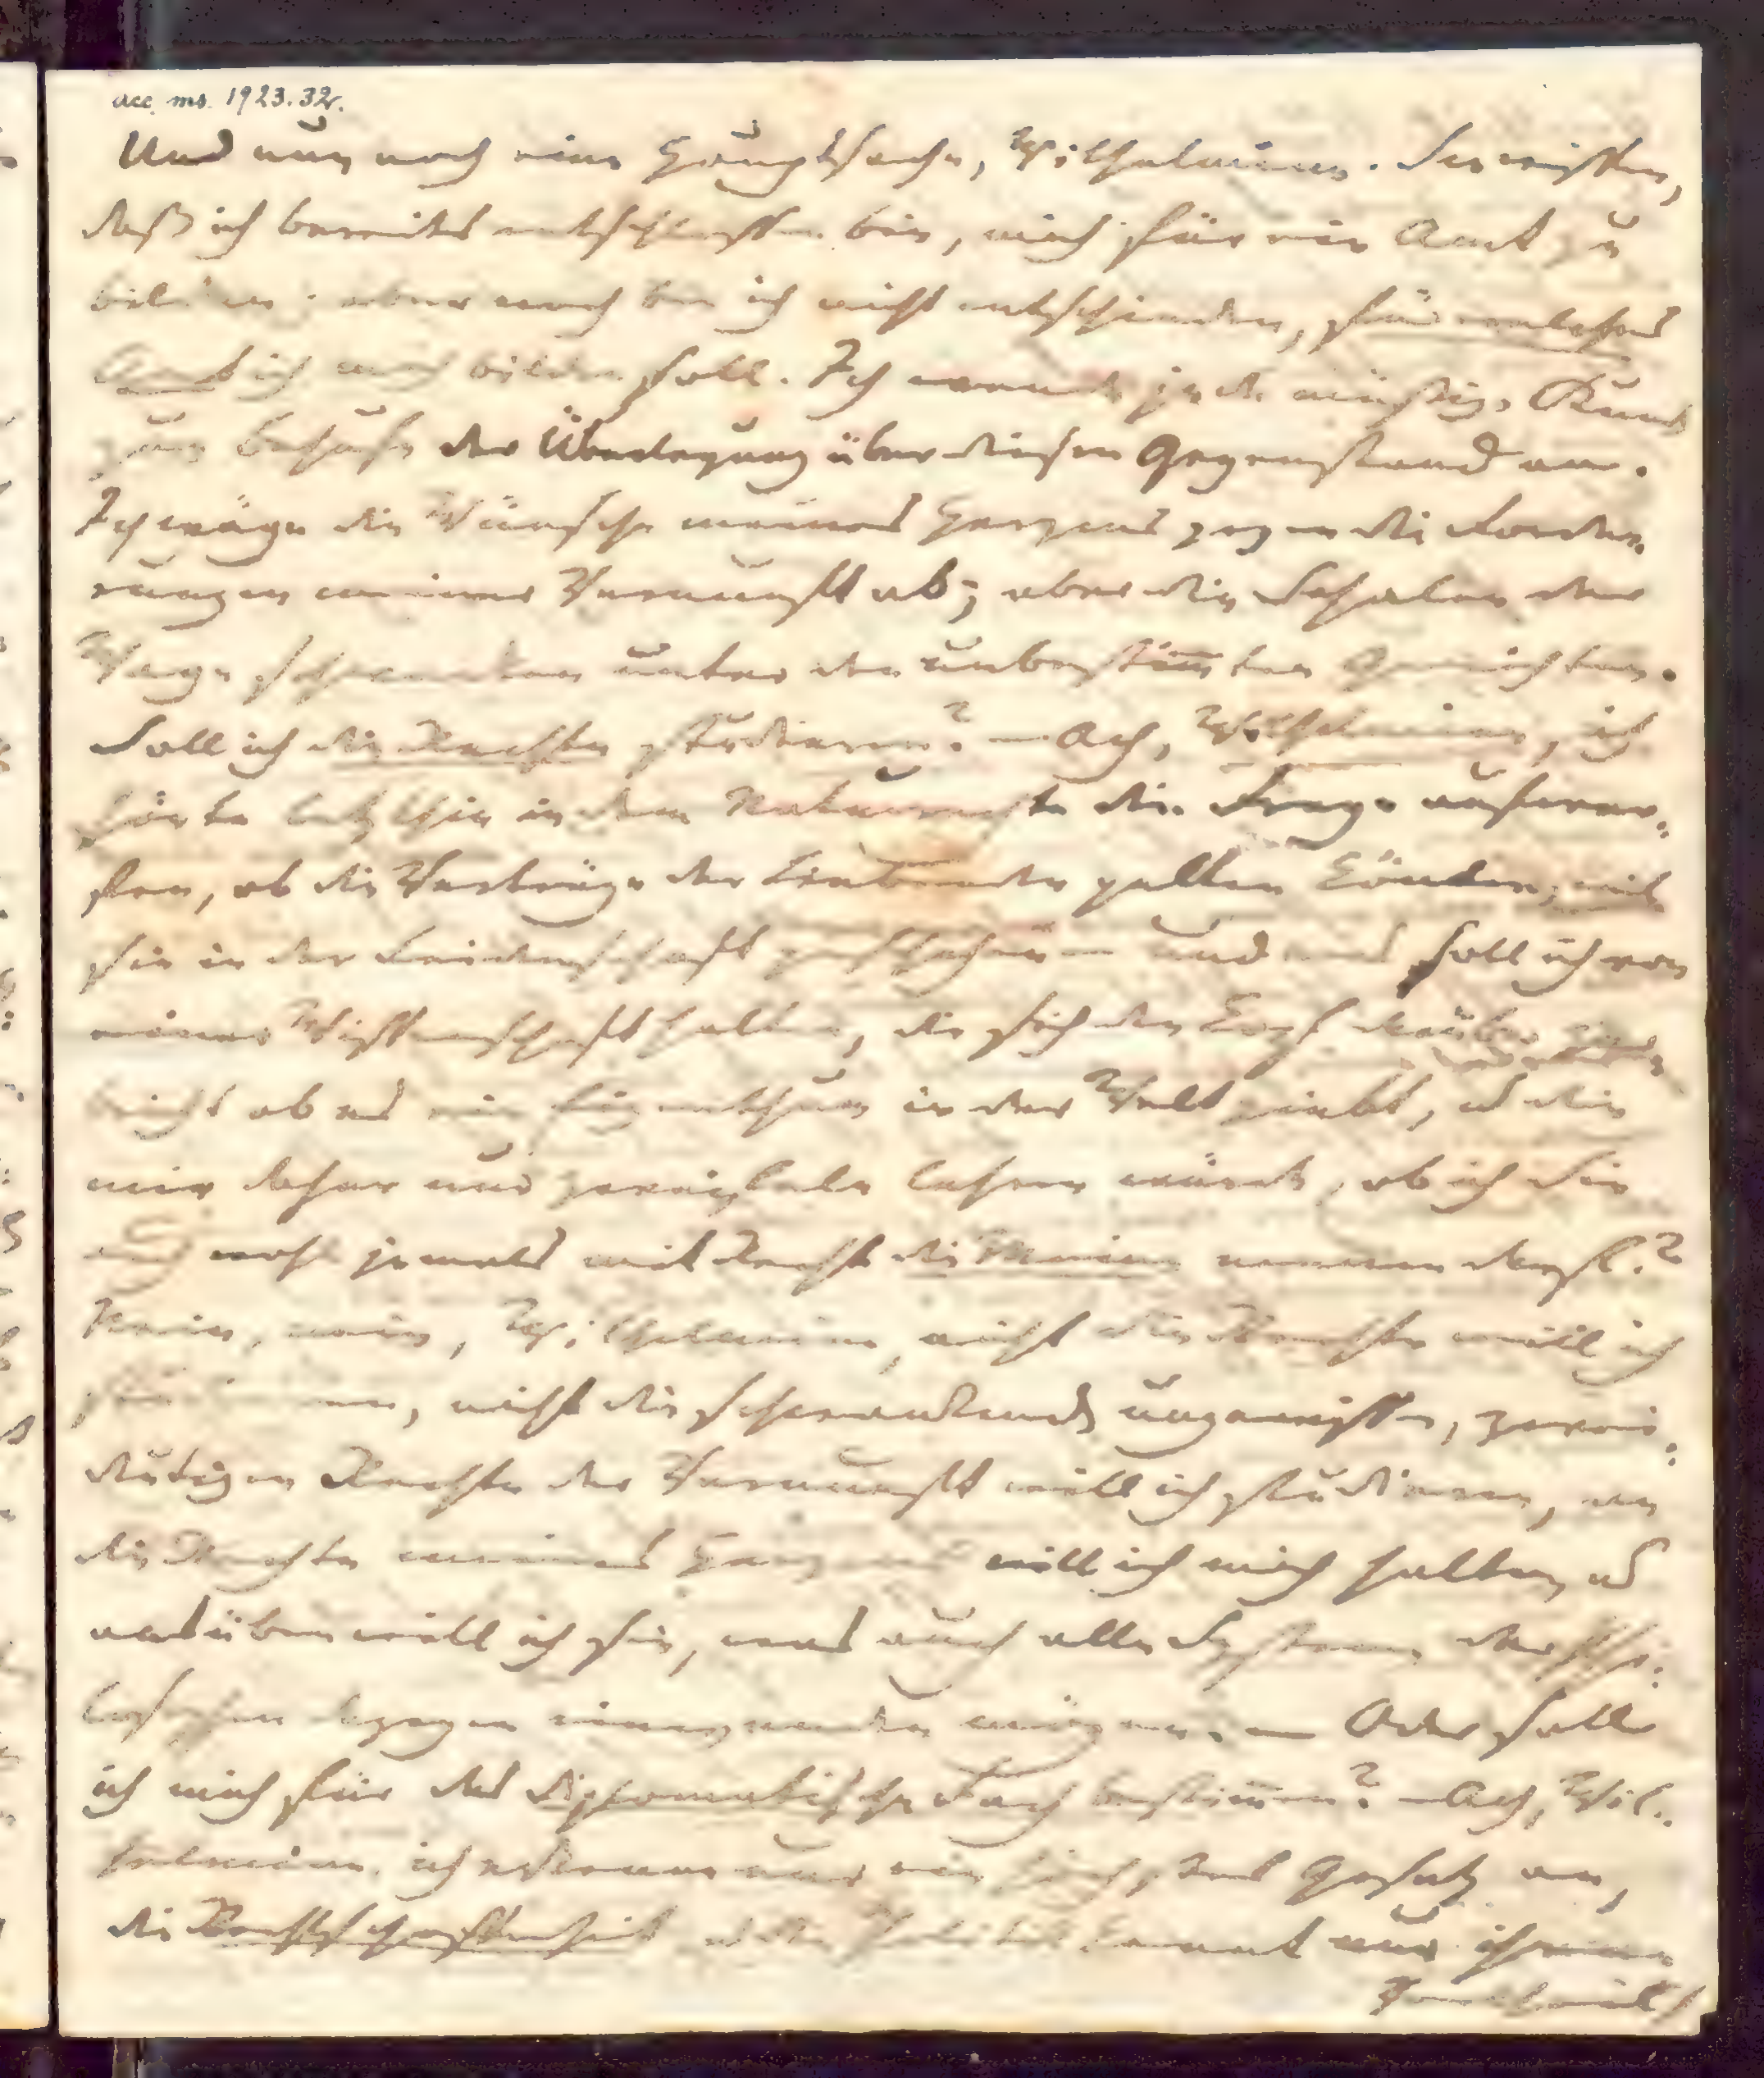 acc. ms. 1923.32.
Und nun noch eine Hauptsache, Wilhelmine. Sie wissen,
daß ich bereits entschlossen bin, mich für ein Amt zu
bilden; aber noch bin ich nicht entschieden, für welches
Amt ich mich bilden soll. Ich wende jede müßige Stunde
zum Behufe der Überlegung über diesen Gegenstand an.
Ich wäge die Wünsche meines Herzens gegen die Forde-
rungen meiner Vernunft ab; aber die Schalen der
Wage schwanken unter den unbestimmten Gewichten.
Soll ich die Rechte studieren? – Ach, Wilhelmine, ich
hörte letzthin in dem Naturrechte die Frage aufwer-
fen, ob die Verträge der Liebenden gelten könnten, weil
sie in der Leidenschaft geschehen – und was soll ich von
einer Wissenschaft halten, die sich den Kopf darüber zer-
bricht ob es ein Eigenthum in der Welt giebt, u die
mir daher nur zweifeln lehren würde, ob ich Sie
auch wohl jemals mit Recht die Meine nennen darf?
Nein, nein, Wilhelmine, nicht die Rechte will ich
studieren, nicht die schwankenden ungewissen, zwei-
deutigen Rechte der Vernunft will ich studieren, an
die Rechte meines Herzens will ich mich halten, u
ausüben will ich sie, was auch alle Systeme der Phi-
losophen dagegen einwenden mögen. – Oder soll
ich mich für das diplomatische Fach bestimmen? – Ach, Wil-
helmine, ich erkenne nur ein höchstes Gesetz an,
die Rechtschaffenheit, u die Politik kennt nur ihren
Vortheil/